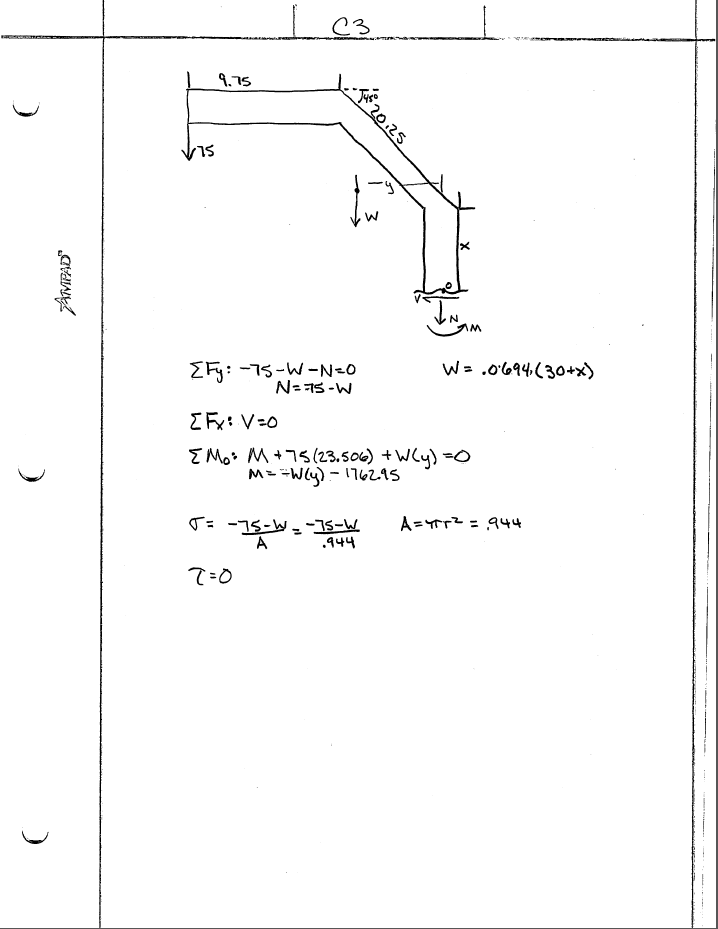 C3
9.75
45°
20.25
75
y
W
x
O
V
N
M
AMPAD
ΣFy: -75-W-N=0
N=-75-W
W = .0694(30+x)
ΣFx: V=0
ΣMo: M+75(23.506)+W(y)=0
M=-W(y)-1762.95
σ= -75-W/A = -75-W/.944
A=πr²=.944
τ=0